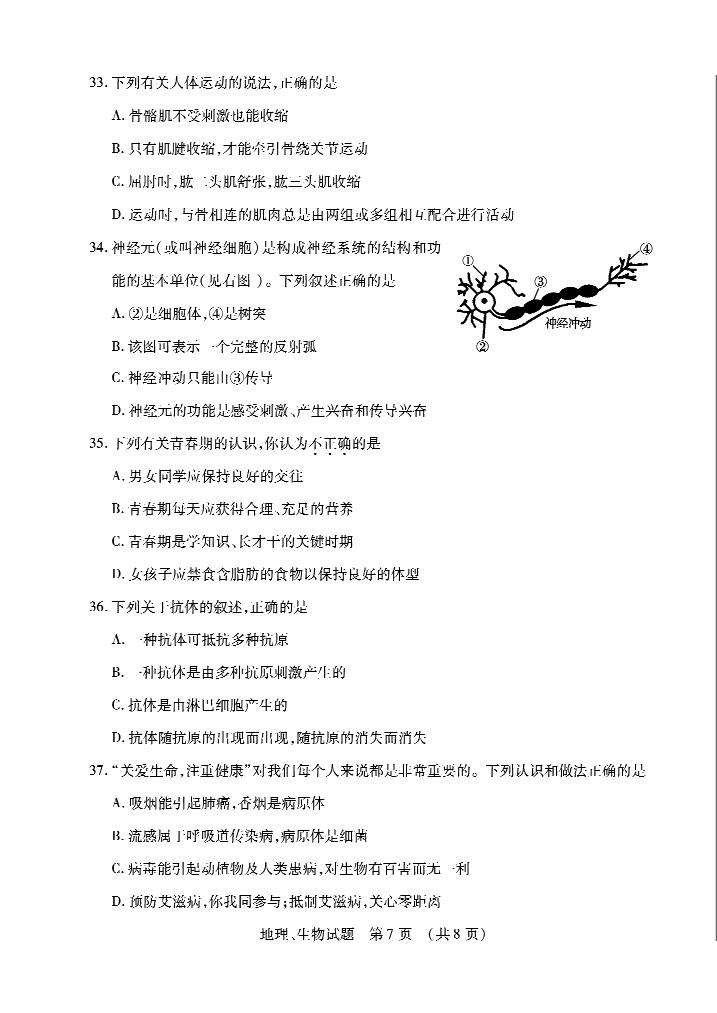 33. 下列有关人体运动的说法,正确的是
A. 骨骼肌不受刺激也能收缩
B. 只有肌腱收缩,才能牵引骨绕关节运动
C. 屈肘时,肱二头肌舒张,肱三头肌收缩
D. 运动时,与骨相连的肌肉总是由两组或多组相互配合进行活动
34. 神经元(或叫神经细胞)是构成神经系统的结构和功
能的基本单位(见右图 )。下列叙述正确的是
A. ②是细胞体,④是树突
B. 该图可表示一个完整的反射弧
C. 神经冲动只能由③传导
D. 神经元的功能是感受刺激、产生兴奋和传导兴奋
①
②
③
④
神经冲动
35. 下列有关青春期的认识,你认为不正确的是
A. 男女同学应保持良好的交往
B. 青春期每天应获得合理、充足的营养
C. 青春期是学知识、长才干的关键时期
D. 女孩子应禁食含脂肪的食物以保持良好的体型
36. 下列关于抗体的叙述,正确的是
A. 一种抗体可抵抗多种抗原
B. 一种抗体是由多种抗原刺激产生的
C. 抗体是由淋巴细胞产生的
D. 抗体随抗原的出现而出现,随抗原的消失而消失
37. “关爱生命,注重健康”对我们每个人来说都是非常重要的。下列认识和做法正确的是
A. 吸烟能引起肺癌,香烟是病原体
B. 流感属于呼吸道传染病,病原体是细菌
C. 病毒能引起动植物及人类患病,对生物有百害而无一利
D. 预防艾滋病,你我同参与;抵制艾滋病,关心零距离
地理、生物试题 第 7 页 (共 8 页)